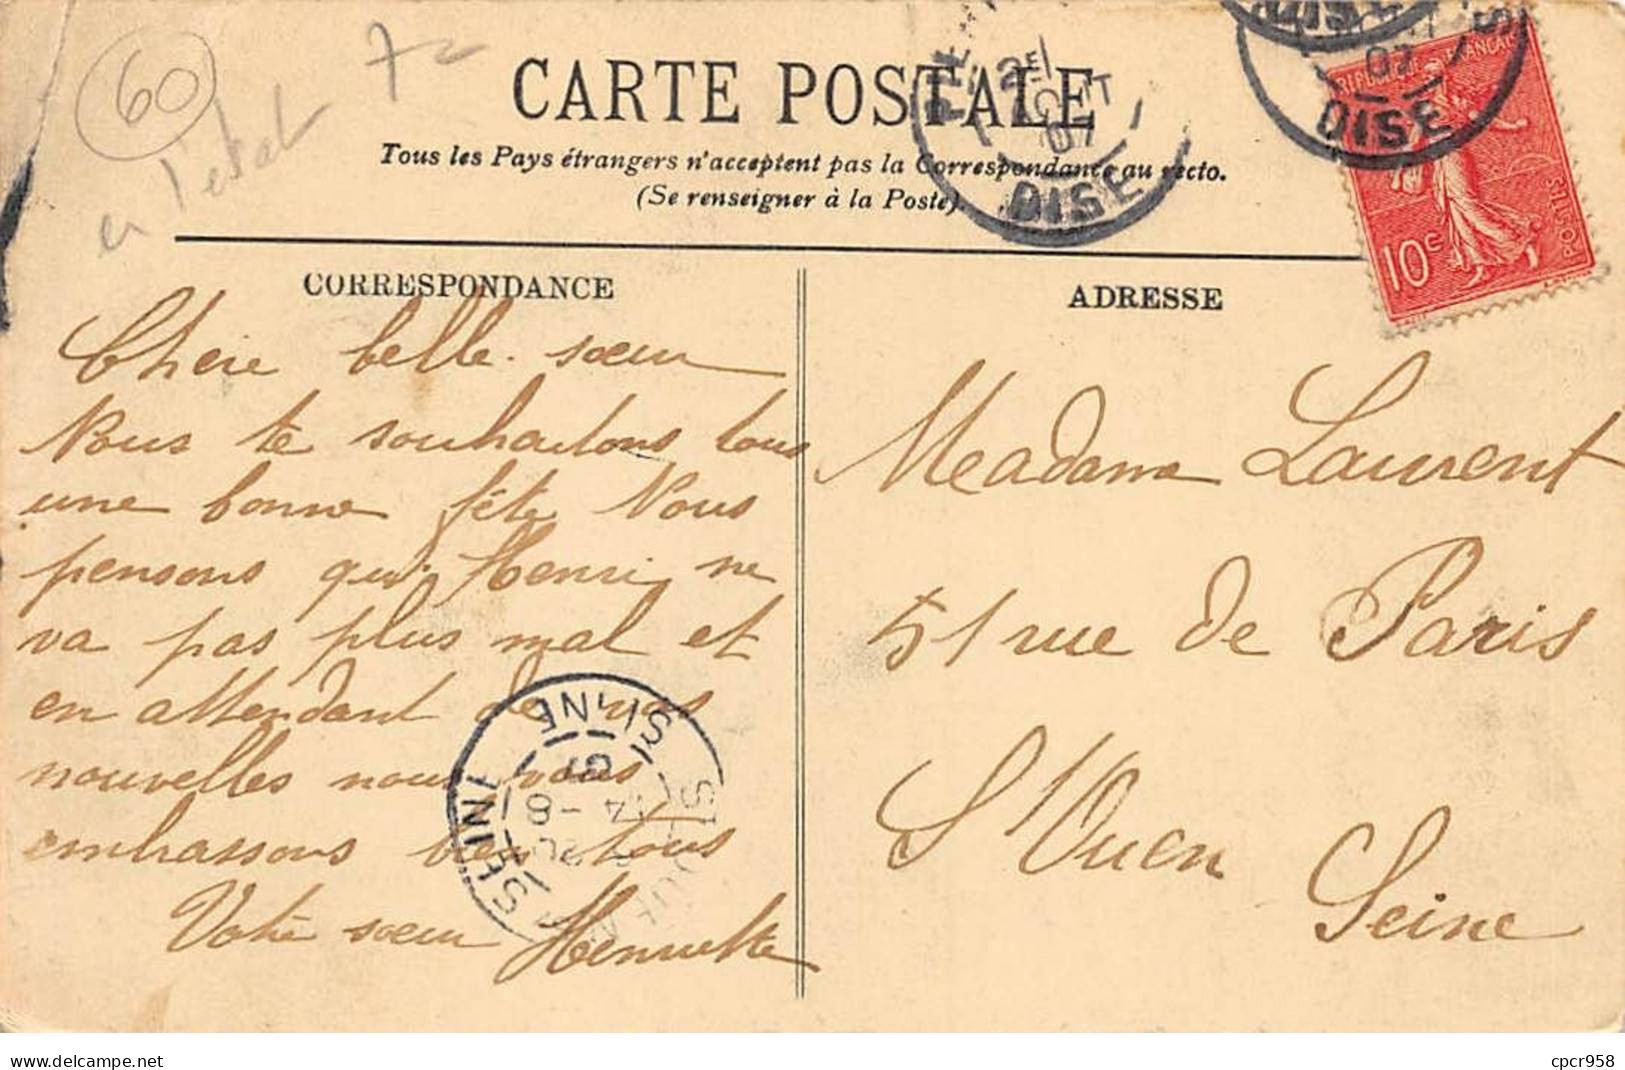 60
en l'état
7
CARTE POSTALE
Tous les Pays étrangers n'acceptent pas la Correspondance au recto.
(Se renseigner à la Poste).
OISE
07
OISE
07
REPUBLIQUE FRANÇAISE
10c
POSTES
CORRESPONDANCE
Chere belle-sœur
Nous te souhaitons tous
une bonne fête Nous
pensons que Henri ne
va pas plus mal et
en attendant de vos
nouvelles nous vous
embrassons bien tous
Votre sœur Henriette
SEINE
SEINE
07
ADRESSE
Madame Laurent
51 rue de Paris
St Ouen
Seine
delcampe.net
cpcr958